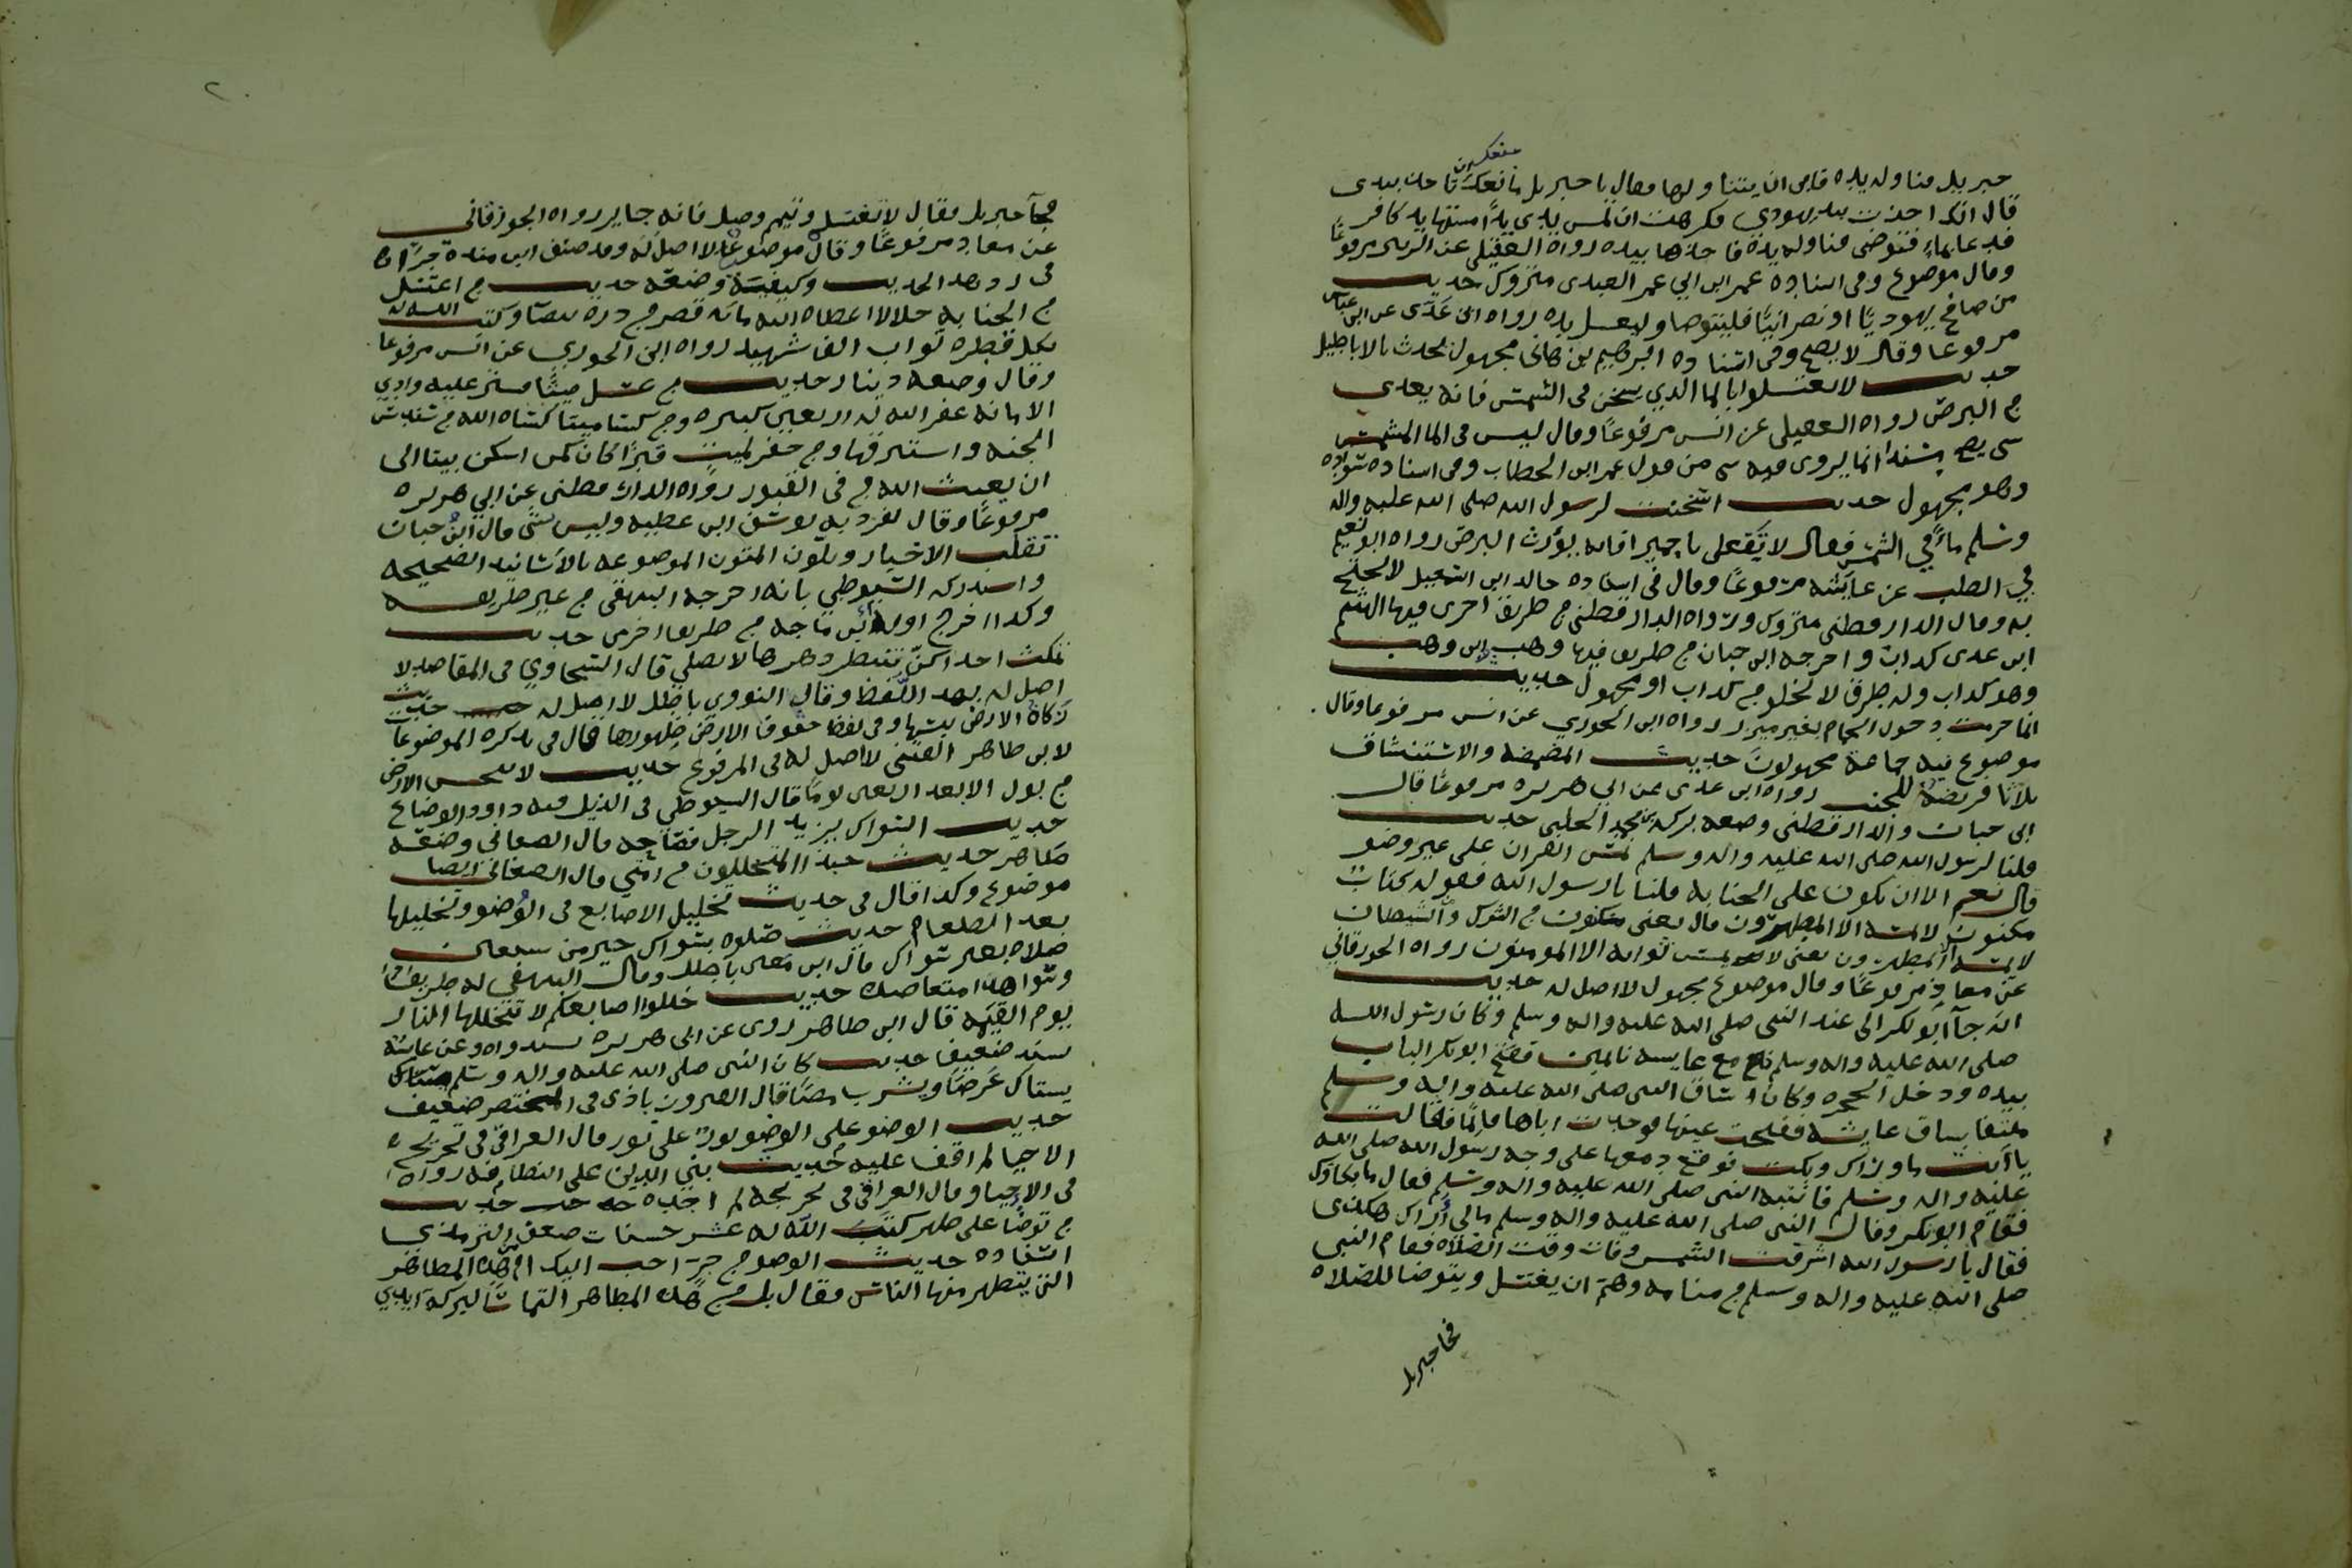 جبريل فناوله يده فابى ان يتناولها فقال يا جبريل ما منعك ان تاخذ بيدى
قال انك اخذت بيد يهودي فكرهت ان تمس يدى يدًا مستها يد كافر
فدعا بماءٍ فتوضى فناوله يده فاخذها بيده رواه العقيلى عن الزبير مرفوعًا
وقال موضوع وفى اسناده عمر ابن ابي عمر العبدى متروك حديث
من صافح يهوديًا او نصرانيًا فليتوضا وليغسل يده رواه ابن عَدَى عن ابن عباس
مرفوعا وقال لا يصح وفى اسناده ابرهيم بن هانى مجهول يحدث بالاباطيل
حديث لا تغتسلوا بالما الذي يسخن فى الشمس فانه يعدى
من البرص رواه العقيلى عن انس مرفوعًا وقال ليس فى الما المشمس
شى يصح مسندا انما يروى فيه شى من قول عمر ابن الخطاب وفى اسناده سواده
وهو مجهول حديث اسخنت لرسول الله صلى الله عليه واله
وسلم ماءً في الشمس فقال لا تَفعلى يا حميرا فانه يورث البرص رواه ابو نعيم
في الطب عن عايشه مرفوعًا وقال فى اسناده خالد ابن اسمعيل لا يحتج
به وقال الدارقطنى متروك ورواه الدارقطنى من طريق اخرى فيها الهيثم
ابن عدى كذاب واخرجه ابن حبان من طريق فيها وهب ابن وهب
وهو كذاب وله طرق لا تخلو من كذاب او مجهول حديث
انما حرمت دخول الحمام بغير ميزر رواه ابن الجوزي عن انس مرفوعا وقال
موضوع فيه جماعة مجهولون حديث المضمضه والاستنشاق
ثلاثا فريضة للجنب رواه ابن عدى عن ابي هريره مرفوعًا قال
ابن حبان والدارقطنى وضعه بركه بن محمد الحلبى حديث
قلنا لرسول الله صلى الله عليه واله وسلم نمس القران على غير وضو
قال نعم الا ان نكون على الجنابه قلنا يا رسول الله فقوله كتاب
مكنون لا يمسه الا المطهرون قال يعنى مكنون من الشرك والشيطان
لا يمسه الا المطهرون يعنى لا يمس ثوابه الا المومنون رواه الجوزقاني
عن معاذ مرفوعًا وقال موضوع مجهول لا اصل له حديث
انه جآ ابو بكر الى عند النبى صلى الله عليه واله وسلم وكان رسول الله
صلى الله عليه واله وسلم مع عايشه نايمين ففتح ابو بكر الباب
بيده ودخل الحجره وكان ساق النبى صلى الله عليه واله وسلم
ملتفا بساق عايشه ففتحت عينها فوجدت اباها قايمًا فقالت
يا ابت ما وراك وبكت فوقع دمعها على وجه رسول الله صلى الله
عليه واله وسلم فانتبه النبى صلى الله عليه واله وسلم فقال ما بكاوك
فقام ابو بكر وقال النبى صلى الله عليه واله وسلم مالى أراك هكذى
فقال يا رسول الله اشرقت الشمس وفات وقت الصلاه فقام النبى
صلى الله عليه واله وسلم من منامه وهمّ ان يغتسل ويتوضا للصلاه
فجا جبريل
فجآ جبريل فقال لا تغتسل وتيمم وصل فانه جايز رواه الجوزقانى
عن معاذ مرفوعًا وقال موضوع لا اصل له وقد صنف ابن منده جزًا
فى رد هذا الحديث وكيفية وضعه حديث من اغتسل
من الجنابه حلالا اعطاه الله مائه قصر من درة بيضا وكتب الله له
بكل قطره ثواب الف شهيد رواه ابن الجوزي عن انس مرفوعا
وقال وضعه دينار حديث من غسل ميتًا فستر عليه وادى
الامانه غفر الله له اربعين كبيره ومن كسا ميتا كساه الله من سندس
الجنه واستبرقها ومن حفر لميت قبرًا كان كمن اسكن بيتا الى
ان يبعث الله من فى القبور رواه الدارقطنى عن ابي هريره
مرفوعًا وقال تفرد به يوسف ابن عطيه وليس بشى قال ابنُ حبان
تقلب الاخبار ويلزق المتون الموضوعه بالاسانيد الصحيحه
واستدركه السيوطي بانه اخرجه البيهقى من غير طريقه
وكذا اخرج اوله ابن ماجه من طريق اخرى حديث
تمكث احداكنّ شطر دهرها لا تصلي قال السخاوي فى المقاصد لا
اصل له بهذا اللفظ وقال النووى باطل لا اصل له حديث
زكاة الارض يبسها وفى لفظ جفوف الارض طهورها قال فى تذكره الموضوعات
لابن طاهر الفتنى لا اصل له فى المرفوع حديث لا تنجس الارض
من بول الا بعد اربعين يومًا قال السيوطي فى الذيل فيه داوود الوضاع
حديث السواك يزيد الرجل فصاحه قال الصغانى وضعه
ظاهر حديث حبذا المتخللون من امتي قال الصغانى ايضا
موضوع وكذا قال فى حديث تخليل الاصابع فى الوُضو وتخليلها
بعد الطعام حديث صلوه بسواك خير من سبعين
صلاه بغير سواك قال ابن معين باطل وقال البيهقى له طريق
وشواهد متعاضده حديث خللوا اصابعكم لا تتخللها النار
يوم القيمه قال ابن طاهر روى عن ابى هريره بسند واه وعن عايشه
بسند ضعيف حديث كان النبى صلى الله عليه واله وسلم
يستاك عَرضًا ويشرب مصًا قال الفيروز باذى فى المختصر ضعيف
حديث الوضو على الوضو نور على نور قال العراقى فى تخريج
الاحيا لم اقف عليه حديث بني الدين على النظافه رواه
فى الإحيا وقال العراقى فى تخريجه لم اجده حديث
من توضا على طهر كتب الله له عشر حسنات ضعف الترمذى
اسناده حديث الوضو من جر احب اليك ام من هذه المطاهر
التى يتطهر منها الناس فقال بل من هذه المطاهر التماسًا لبركه ايدي